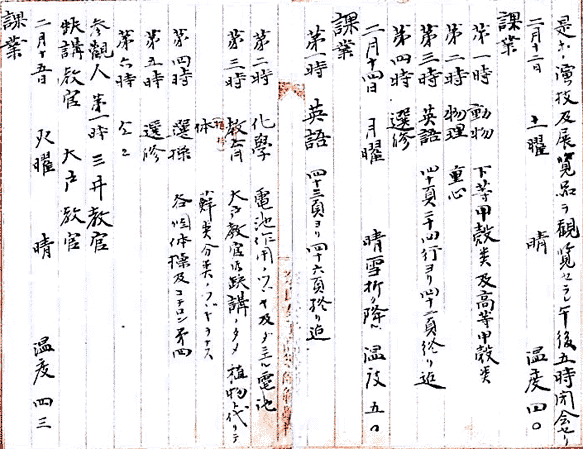 是ホ演技及展覧品ヲ観覧セラレ午後五時閉会セリ
二月十二日 土曜 晴 温度 四〇
課業
第一時 動物 下等甲殻類及高等甲殻類
第二時 物理 重心
第三時 英語 四十頁二十四行ヨリ四十二頁終リ迄
第四時 選修
二月十四日 月曜 晴雪折々降ル 温度 五〇
課業
第一時 英語 四十三頁ヨリ四十六頁終リ迄
第二時 化學 電池作用ノツヾキ及ダニエル電池
第三時 教育 大戸教官欠講ノタメ植物ト代リテ
蘚類分類ノツヾキヲナス
第四時 体操 各個体操及コチロン第四
第五時 選修
第六時 仝上
参観人 第一時 三井教官
欠講教官 大戸教官
二月十五日 火曜 晴 温度 四三
課業